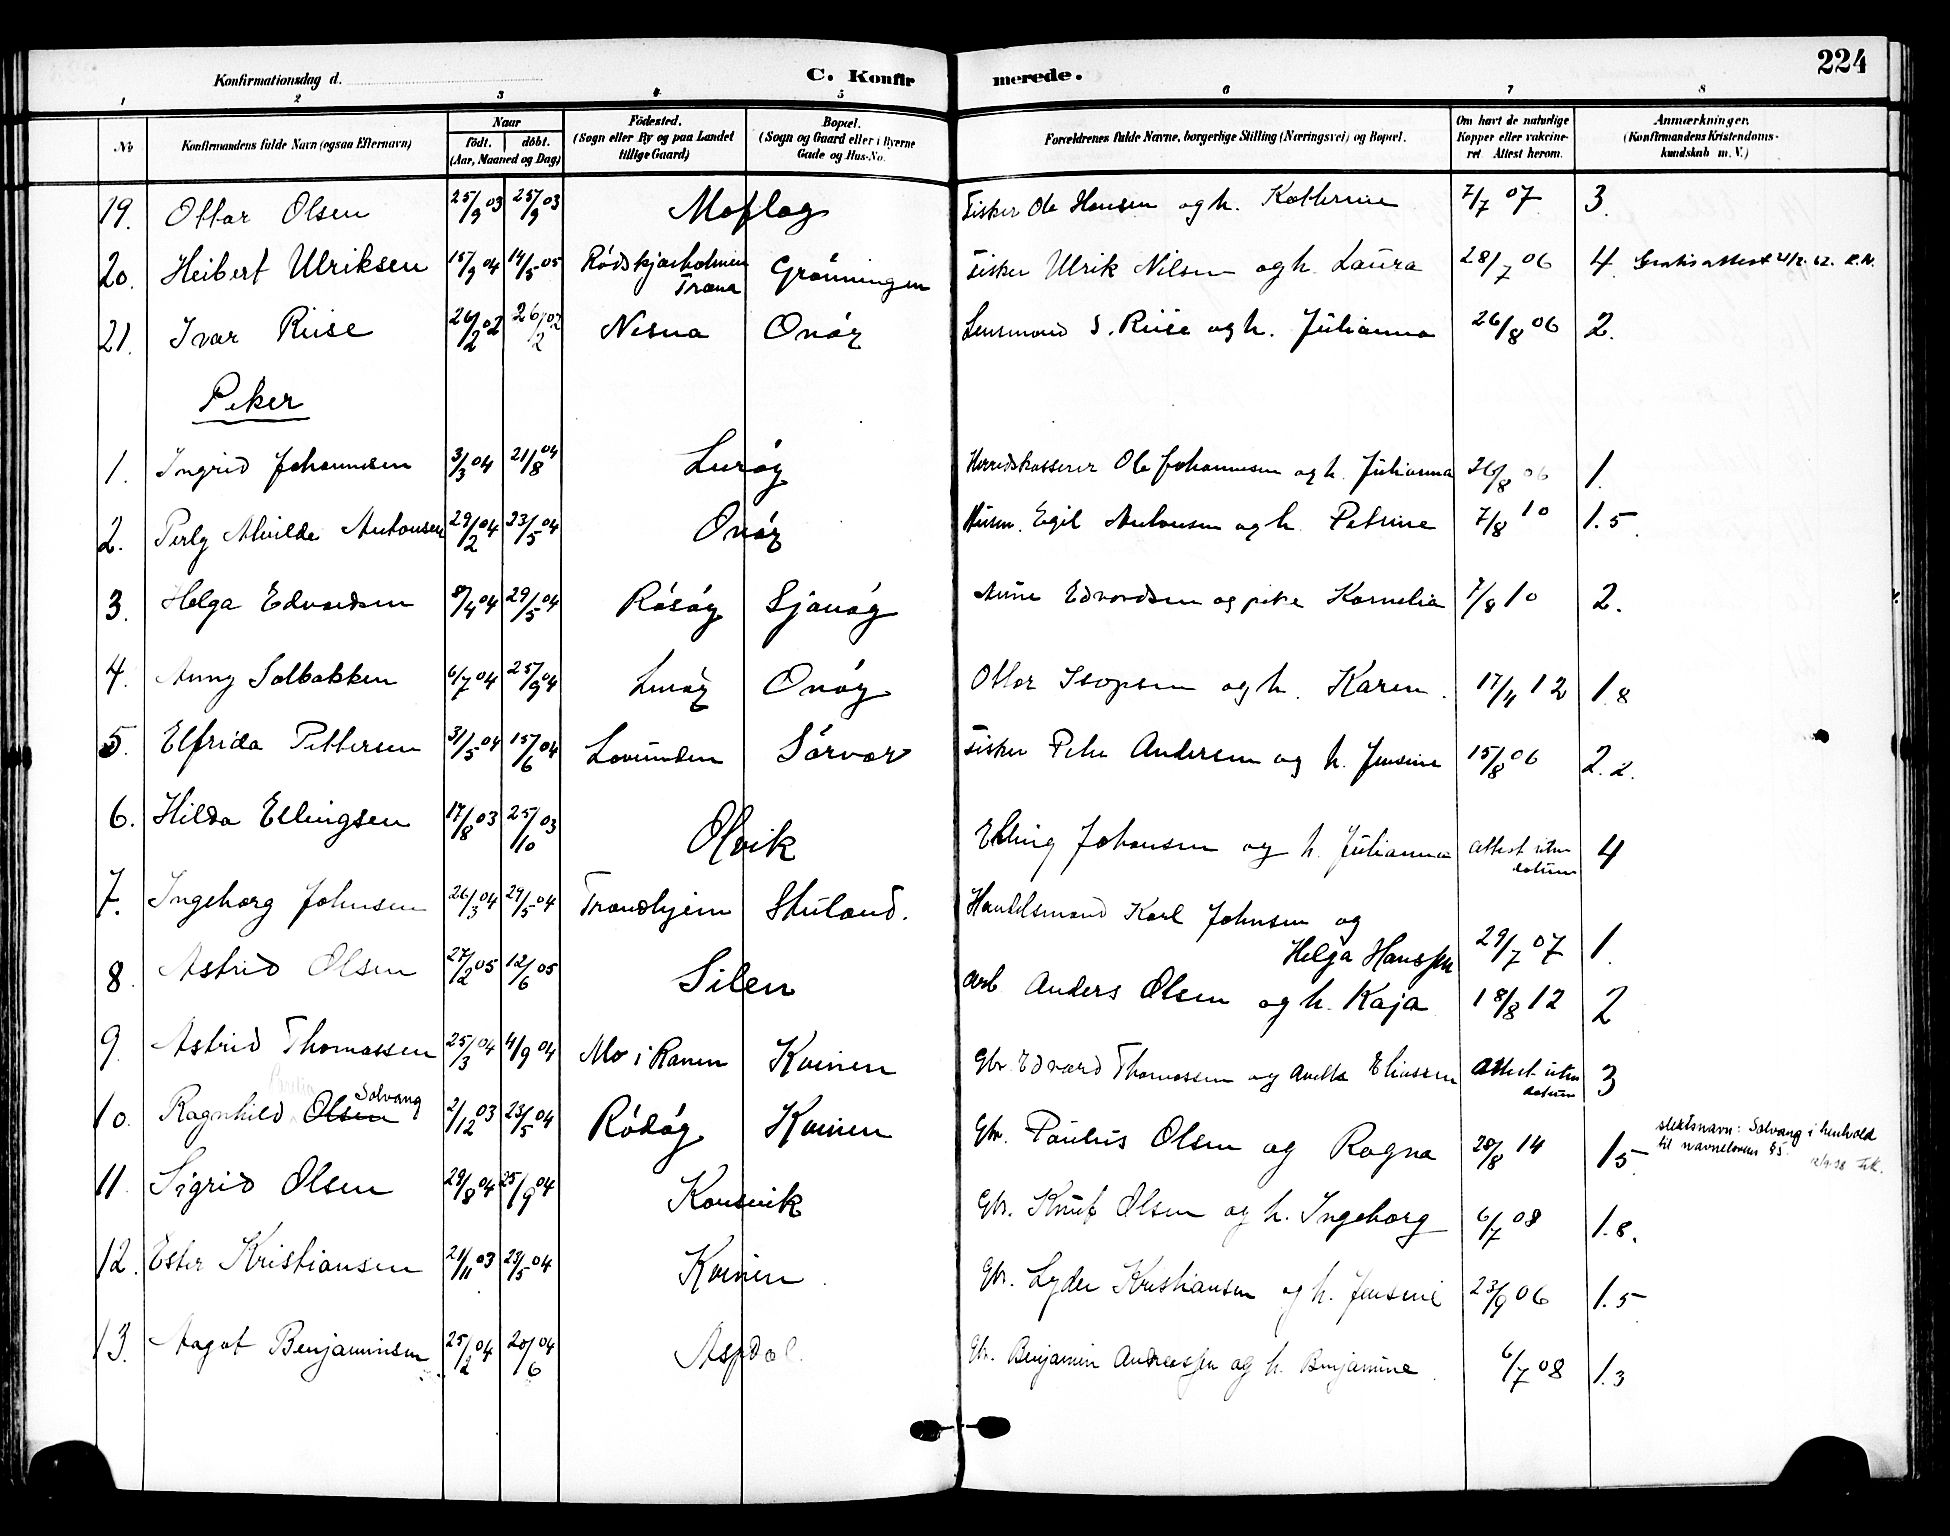 224
Konfirmationsdag d.
C. Konfirmerede.
1 2 3 4 5 6 7 8
No Konfirmandens fulde Navn (ogsaa Efternavn) Naar født. døbt. (Aar, Maaned og Dag) Fødested. (Sogn eller By og paa Landet tillige Gaard) Bopæl. (Sogn og Gaard eller i Byerne Gade og Hus-No. Forældrenes fulde Navne, borgerlige Stilling (Næringsvei) og Bopæl. Om havt de naturlige Kopper eller vakcineret Attest herom. Anmærkninger. (Konfirmandens Kristendomskundskab m. V.)
19. Ottar Olsen 25/9 03 25/9 03 Moflag Fisker Ole Hansen og h. Katherine 7/7 07 3.
20. Heibert Ulriksen 15/9 04 14/5 05 Rødskjærholmen Træna Grønningen Fisker Ulrik Nilsen og h. Laura 28/7 06 4. Gratis attest
21. Ivar Riise 26/2 02 26/2 02 Nesna Onøy Lensmand S. Riise og h. Julianna 26/8 06 2.
Piker
1. Ingrid Johannesen 3/3 04 21/8 04 Lurøy Herredskasserer Ole Johannesen og h. Julianna 26/8 06 1.
2. Perly Alvilde Antonsen 29/2 04 23/5 04 Onøy Husm. Egil Antonsen og h. Petrine 7/8 10 1.5
3. Helga Edvardsen 8/4 04 29/5 04 Røsøy Sjonøy Arne Edvardsen og pike Kornelia 7/8 10 2.
4. Anny Solbakken 6/7 04 25/9 04 Lurøy Onøy Ottar Isopsen og h. Karen. 17/4 12 1.8
5. Elfrida Pettersen 31/5 04 15/6 04 Lovunden Sørvær Fisker Peter Andersen og h. Jensine 15/8 06 2.2.
6. Hilda Ellingsen 17/8 03 25/10 03 Olvik Elling Johansen og h. Julianna attest uten datum 4
7. Ingeborg Johnsen 26/3 04 29/5 04 Trondhjem Stuland. Handelsmand Karl Johnsen og
Helga Hanssen 29/7 07 1.
8. Astrid Olsen 27/2 05 12/6 05 Silen arb Anders Olsen og h. Kaja 18/8 12 2
9. Astrid Thomassen 25/3 04 4/9 04 Mo i Ranen Kvinen Gbr. Edvard Thomassen og Anette Eliassen Attest uten datum 3
10. Ragnhild Olsen Solvang 2/12 03 23/5 04 Rødøy Kvinen Gbr. Paulus Olsen og Ragna 28/8 14 1.5 slektsnavn: Solvang i henhold
til navneloven §5
11. Sigrid Olsen 29/8 04 25/9 04 Konsvik Gbr. Knut Olsen og h. Ingeborg 6/7 08 1.8.
12. Ester Kristiansen 21/11 03 23/5 04 Kvinen Gbr. Lyder Kristiansen og h. Jensine 23/9 06 1.5
13. Aagot Benjaminsen 25/2 04 20/6 04 Aspdal Gbr. Benjamin Andreassen og h. Benjamine. 6/7 08 1.3